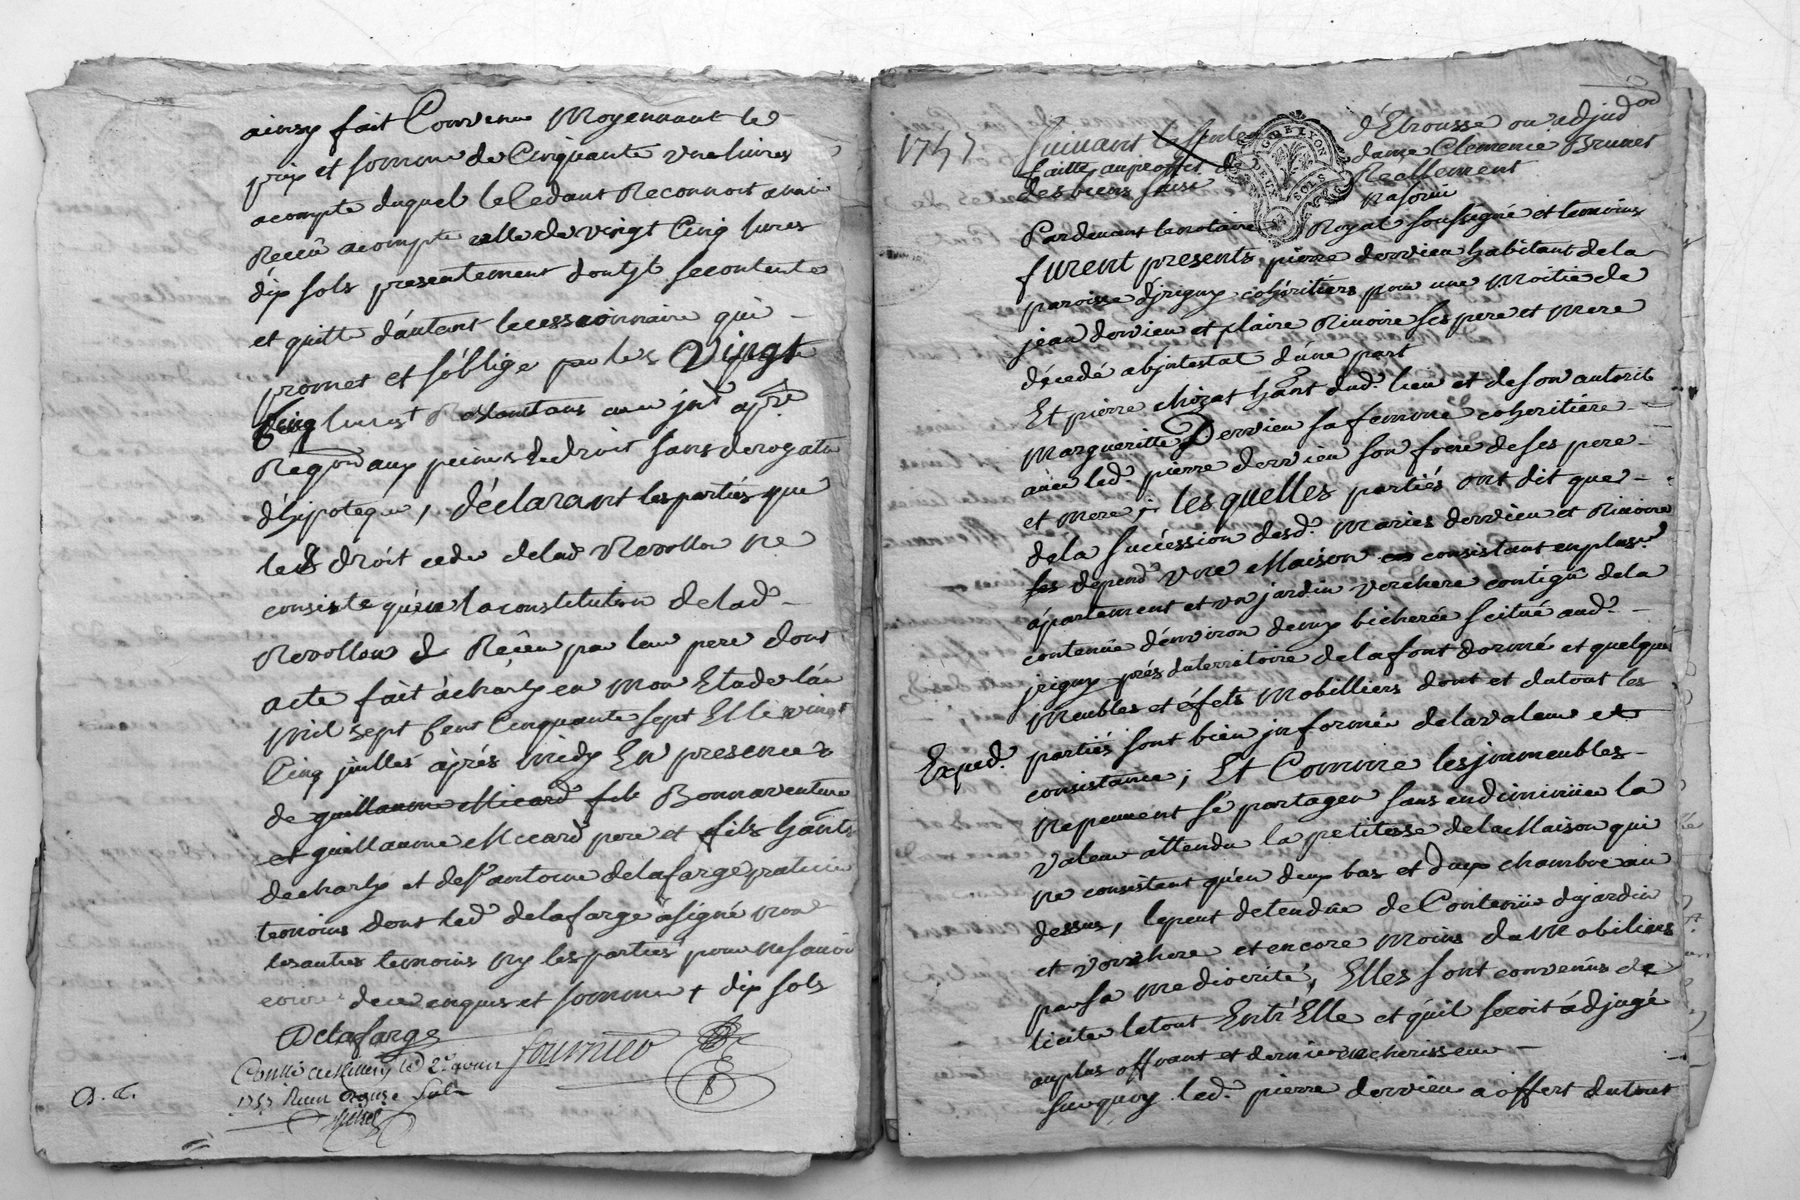 ainsy fait Convenu Moyennant le
prix et somme de Cinquante une livres
acompte duquel le Cedant Reconnoit avoir
Receu acompte celle de vingt Cinq livres
dix sols presentement dont jl se contente
et quitte d'autant le cessionnaire qui
promet et s'oblige
vingt
Cinq livres + Restantans
aux peines de droit sans derogation
d'hipoteque, déclarant les parties que
droit cedé de lad. Revollon ne
consiste qu'en la constitution de lad.
Revollon Receu par leur pere dont
acte fait à charly en mon Etude l'an
mil sept Cent Cinquante sept Et le vingt
Cinq juillet après midy En presence
de guillaume Micard fils Bonnaventure
et guillaume Micard pere et fils hants
de charly et de Sr antoine delafarge praticien
temoins dont led. delafarge à signé non
les autres temoins ny les parties pour ne savoir
ecrire de ce enquis et sommé + dix sols
Delafarge
fournier
1757 Reçu douze sols
1757
GE LYON
DEUX SOLS
d'Etrousse ou adjud
faitte au proffit de
Clemence Brunet
des biens saisi
Reallement
Pardevant le notaire Royal soussigné et temoins
furent presents pierre dervieu habitant de la
paroisse d'jrigny cohéritiers pour une Moitie de
jean dervieu et claire Rivoire ses pere et mere
décedé abjntestat d'une part
Et pierre chozat hant dud. lieu et de son autorité
Margueritte Dervieu sa femme coheritiere
avec led. pierre dervieu son frere de ses pere
et mere ; les quelles partiés ont dit que
de la succéssion desd. Mariés dervieu et Rivoire
depend une Maison consistant en plusr.
ápartement et un jardin verchere contigüe de la
contenüe d'environ deux bicherée scitué aud.
jrigny prés du territoire de la font dormé et quelque
Meubles et éfets Mobilliers dont et du tout les
Exped.
partiés sont bien jnformée de la valeur et
consistance ; Et Comme les jmmeubles
ne peuvent se partager sans en diminüer la
valeur attendu la petitesse de la Maison qui
ne consistent qu'en deux bas et deux chambre au
dessus, le peut detendüe de Contenüe du jardin
et verchere et encore moins du Mobiliers
par sa mediocrité, Elles sont convenüs de
liciter le tout Entr'Elle et qu'il seroit ádjugé
au plus offrant et dernier encherisseur
surquoy led. pierre dervieu a offert du tout